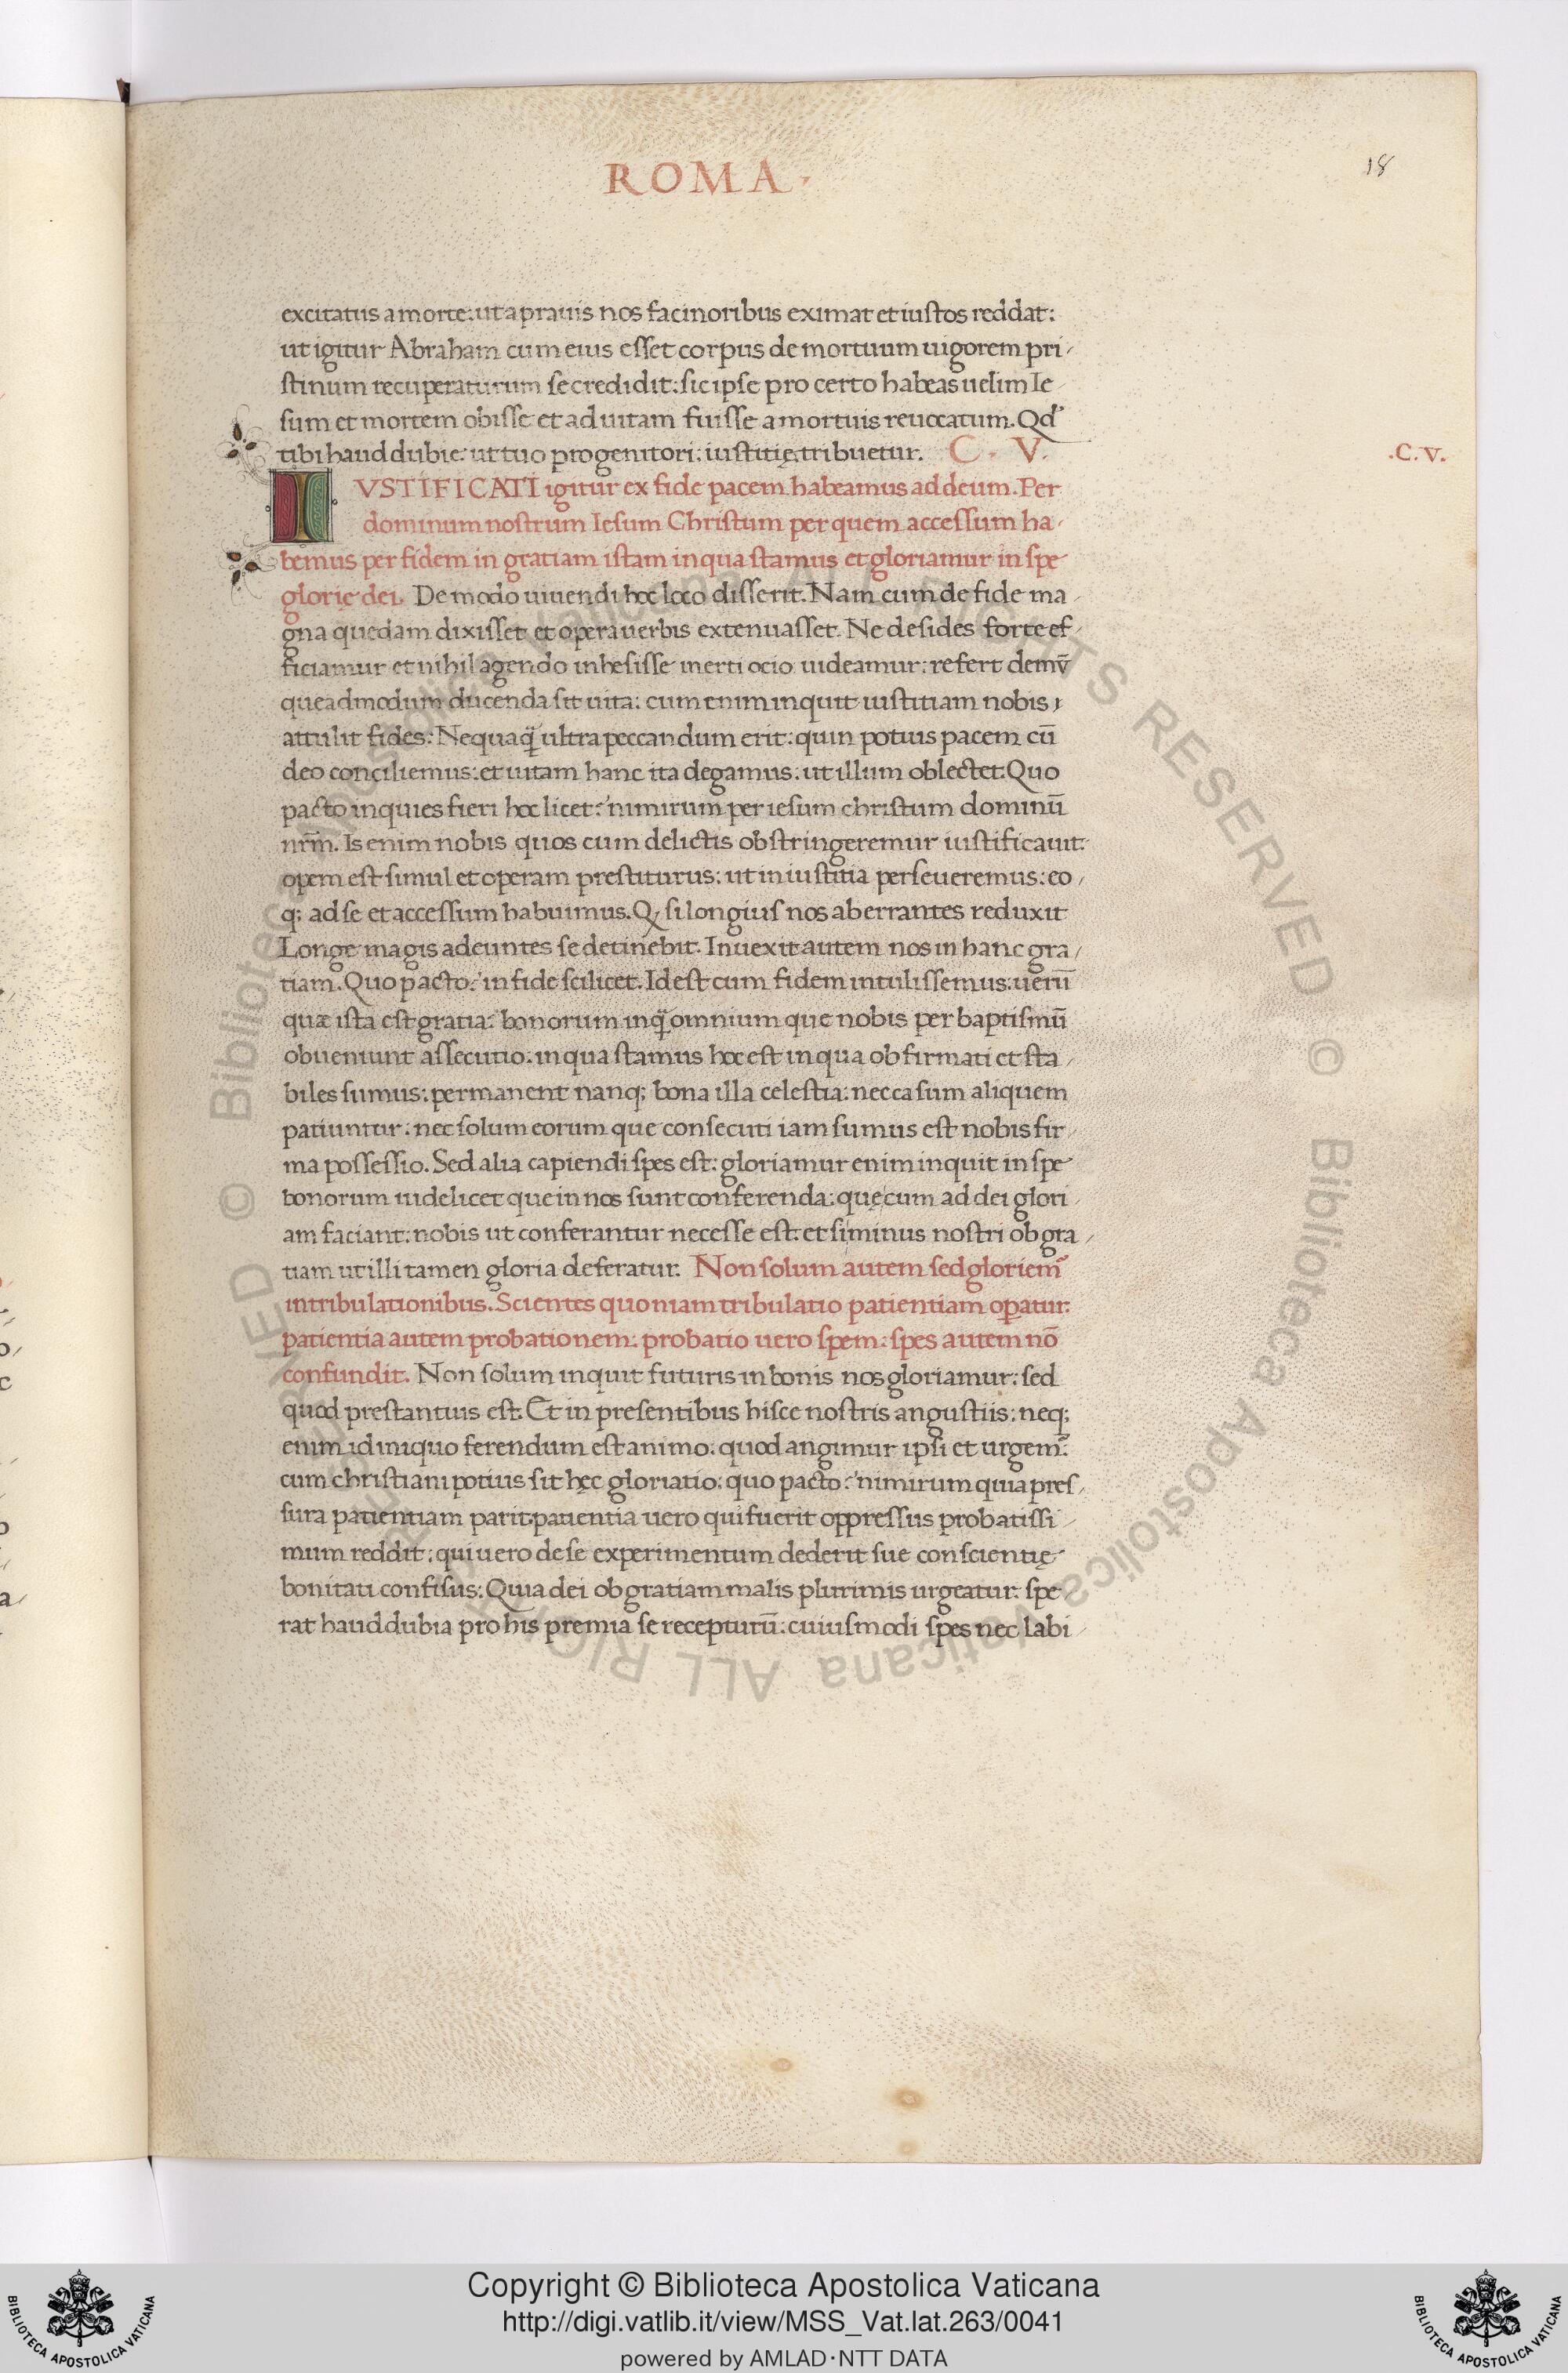 ROMA.
18
excitatus a morte: ut a prauis nos facinoribus eximat et iustos reddat:
ut igitur Abraham cum eius esset corpus demortuum uigorem pri
stinum recuperaturum se credidit: sic ipse pro certo habeas uelim Ie
sum et mortem obisse et ad uitam fuisse a mortuis reuocatum. Qd
tibi haud dubie: ut tuo progenitori: iustitię tribuetur. C. V.
.C.V.
IVSTIFICATI igitur ex fide pacem habeamus ad deum. Per
dominum nostrum Iesum Christum per quem accessum ha
bemus per fidem in gratiam istam in qua stamus et gloriamur in spe
glorie dei. De modo uiuendi hoc loco disserit. Nam cum de fide ma
gna quedam dixisset et opera uerbis extenuasset. Ne desides forte ef
ficiamur et nihil agendo inhesisse inerti ocio uideamur: refert demū
queadmodum ducenda sit uita: cum enim inquit iustitiam nobis
attulit fides: Nequaq̃ ultra peccandum erit: quin potius pacem cū
deo conciliemus: et uitam hanc ita degamus: ut illum oblectet: Quo
pacto inquies fieri hoc licet? nimirum per iesum christum dominū
nrm̄. Is enim nobis quos cum delictis obstringeremur iustificauit:
opem est simul et operam prestiturus: ut in iustitia perseueremus: eo
q; ad se et accessum habuimus. Q si longius nos aberrantes reduxit
Longe magis adeuntes se detinebit. Inuexit autem nos in hanc gra
tiam. Quo pacto? in fide scilicet. Id est cum fidem intulissemus: uerū
quæ ista est gratia? bonorum inq̃ omnium que nobis per baptismū
obueniunt assecutio: in qua stamus hoc est in qua obfirmati et sta
biles sumus: permanent nanq; bona illa celestia: nec casum aliquem
patiuntur: nec solum eorum que consecuti iam sumus est nobis fir
ma possessio. Sed alia capiendi spes est: gloriamur enim inquit in spe
bonorum uidelicet que in nos sunt conferenda: quę cum ad dei glori
am faciant: nobis ut conferantur necesse est: et si minus nostri ob gra
tiam ut illi tamen gloria deferatur. Non solum autem sed gloriem᷒
in tribulationibus. Scientes quoniam tribulatio patientiam opatur:
patientia autem probationem: probatio uero spem: spes autem nō
confundit. Non solum inquit futuris in bonis nos gloriamur: sed
quod prestantius est: Et in presentibus hisce nostris angustiis: neq;
enim id iniquo ferendum est animo: quod angimur ipsi et urgem᷒:
cum christiani potius sit hęc gloriatio: quo pacto? nimirum quia pres
sura patientiam parit: patientia uero qui fuerit oppressus probatissi
mum reddit: qui uero de se experimentum dederit sue conscientię
bonitati confisus: Quia dei ob gratiam malis plurimis urgeatur: spe
rat haud dubia pro his premia se recepturū: cuiusmodi spes nec labi
© Biblioteca Apostolica Vaticana ALL RIGHTS RESERVED © Biblioteca Apostolica Vaticana ALL RIGHTS RESERVED
Copyright © Biblioteca Apostolica Vaticana
http://digi.vatlib.it/view/MSS_Vat.lat.263/0041
powered by AMLAD·NTT DATA
BIBLIOTECA APOSTOLICA VATICANA
BIBLIOTECA APOSTOLICA VATICANA